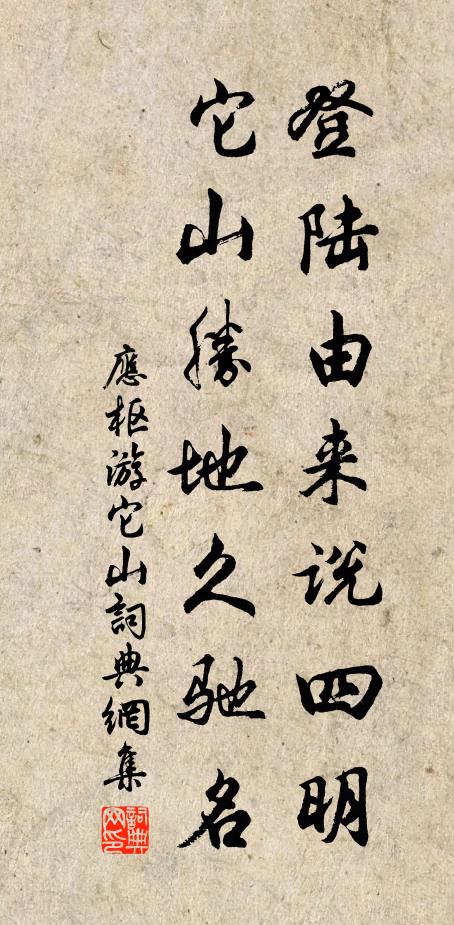 登陆由来说四明
它山勝地久驰名
應枢游它山詞典網集
詞典网印